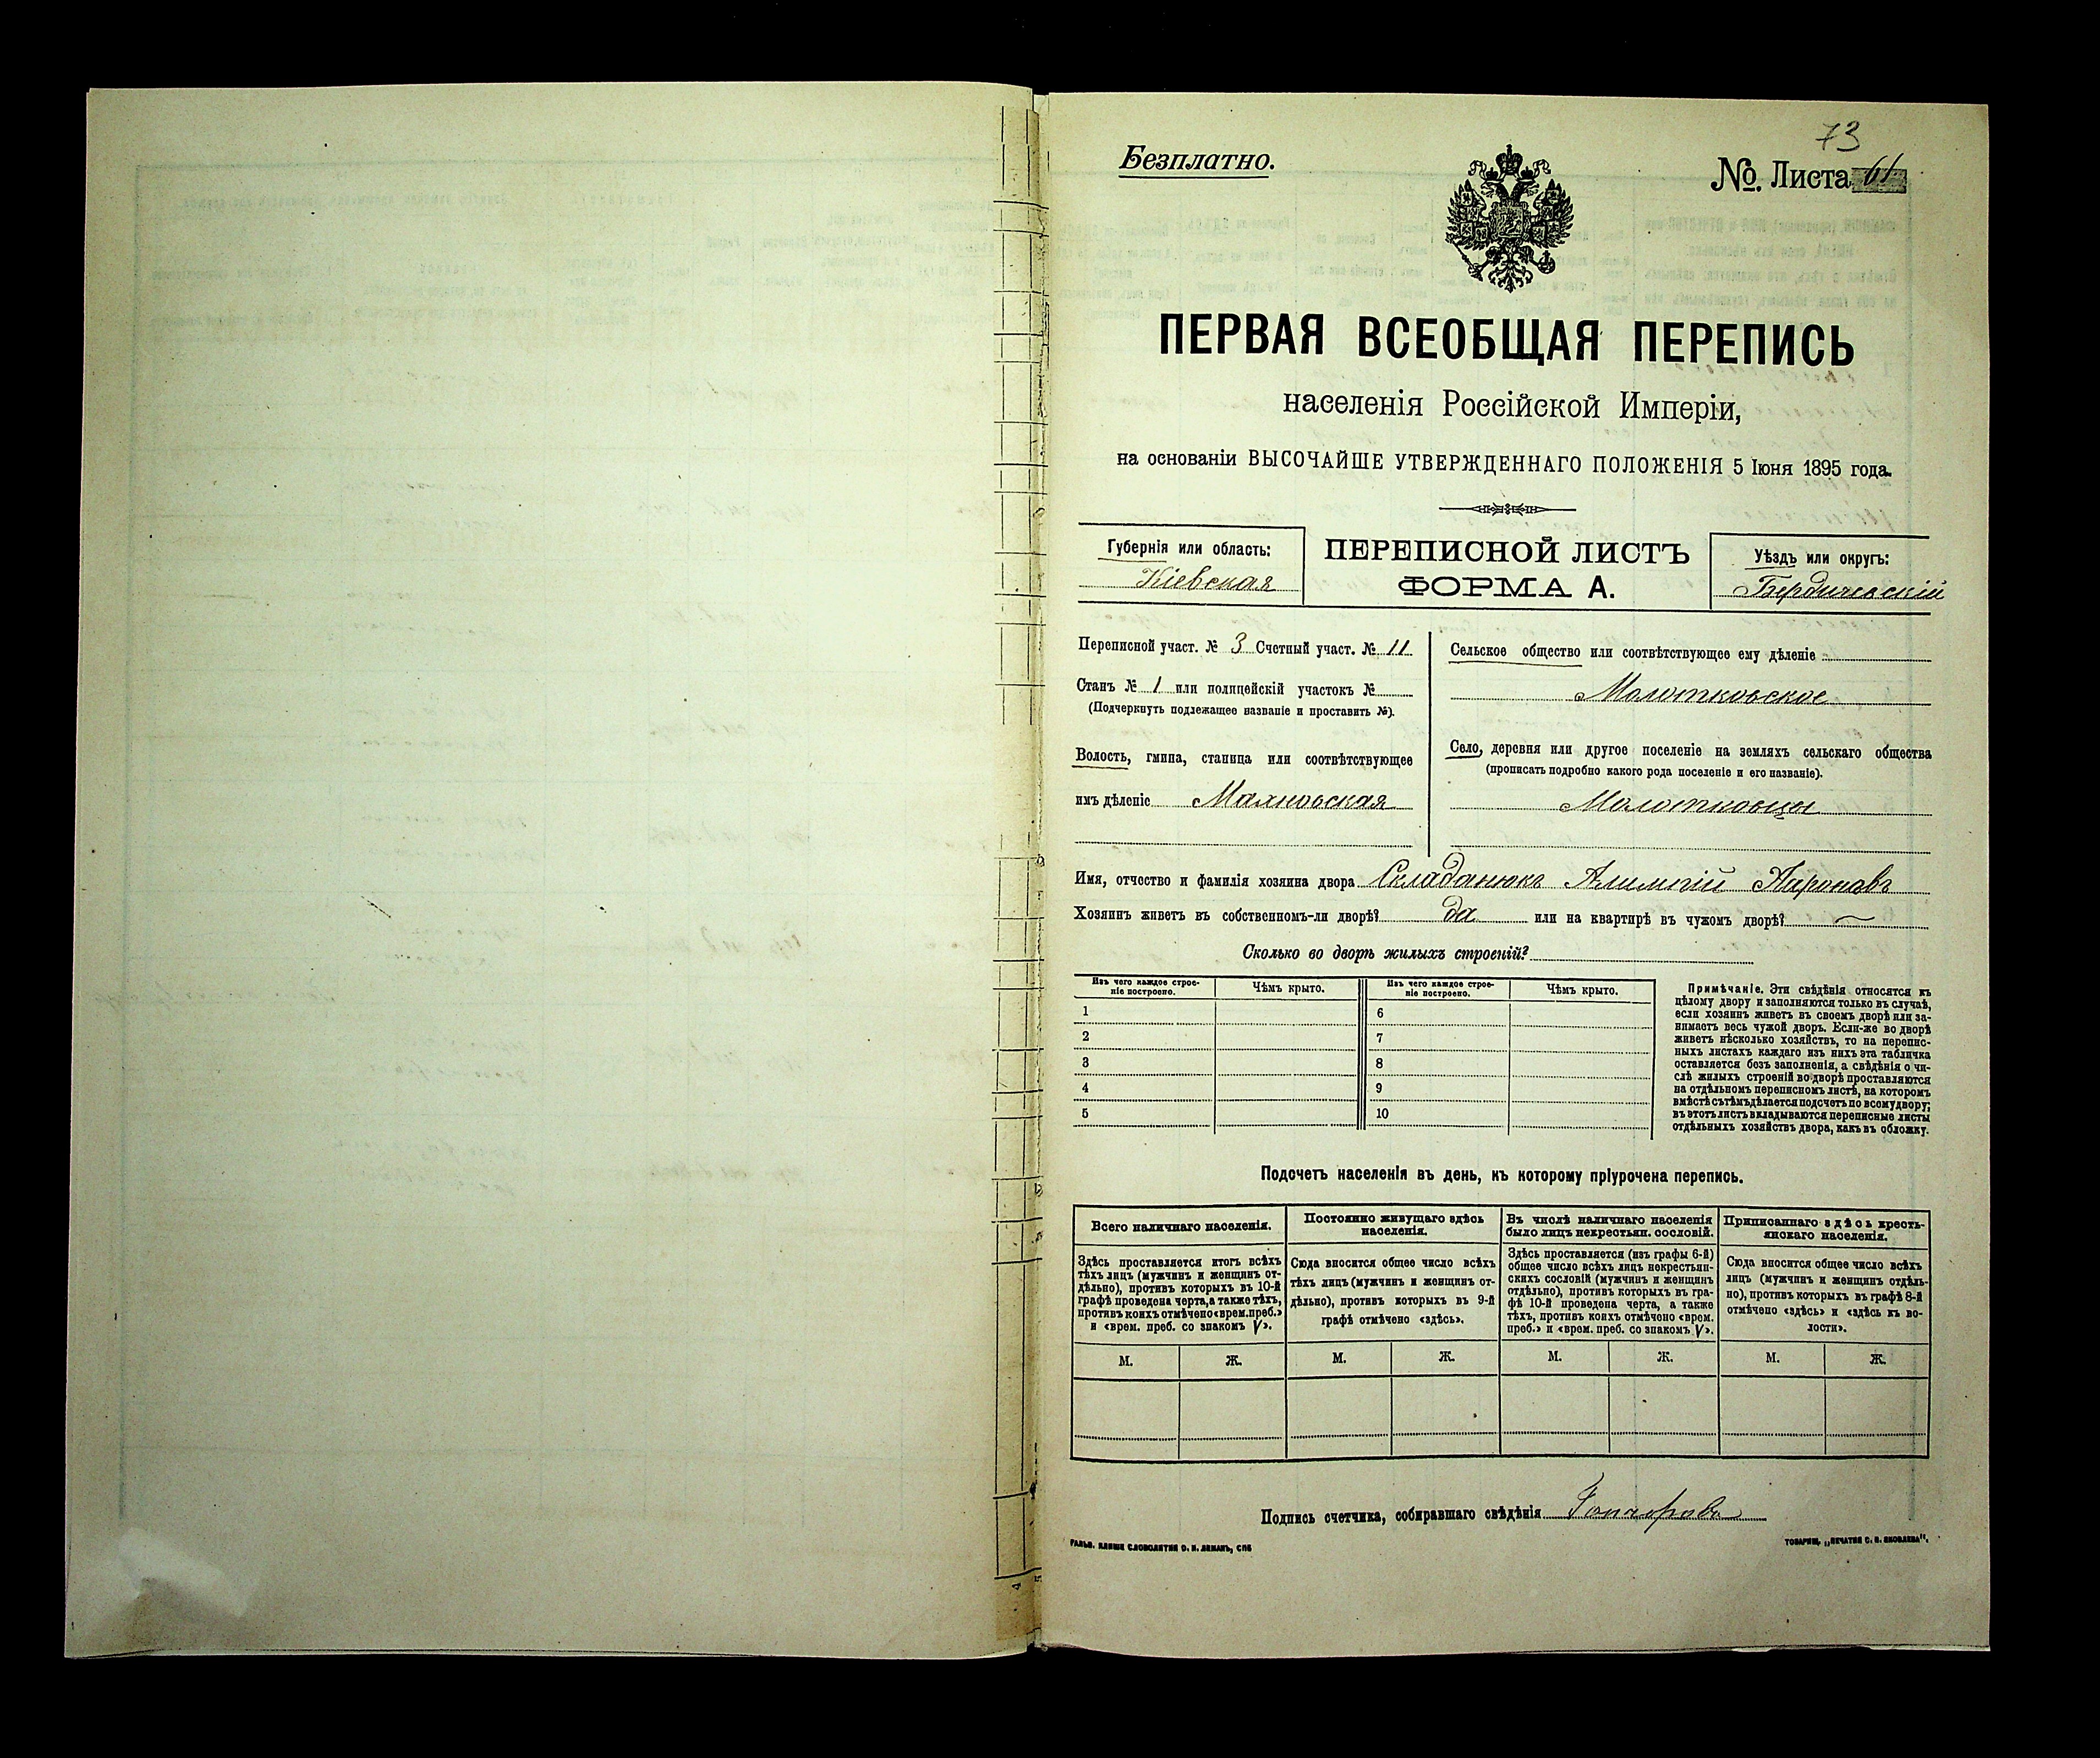 73
Безплатно.
№. Листа 61
ПЕРВАЯ ВСЕОБЩАЯ ПЕРЕПИСЬ
населенія Россійской Имперіи,
на основаніи ВЫСОЧАЙШЕ УТВЕРЖДЕННАГО ПОЛОЖЕНІЯ 5 Іюня 1895 года.
Губернія или область:
Кіевская
ПЕРЕПИСНОЙ ЛИСТЪ
ФОРМА А.
Уѣздъ или округъ:
Бердичевскій
Переписной участ. № 3 Счетный участ. № 11
Станъ № 1 или полицейскій участокъ №
(Подчеркнуть подлежащее названіе и проставить №).
Волость, гмина, станица или соотвѣтствующее
имъ дѣленіе Махновская
Сельское общество или соотвѣтствующее ему дѣленіе
Молотковское
Село, деревня или другое поселеніе на земляхъ сельскаго общества
(прописать подробно какого рода поселеніе и его названіе).
Молотковцы
Имя, отчество и фамилія хозяина двора Складанюкъ Алимпій
Хозяинъ живетъ въ собственномъ-ли дворѣ? да или на квартирѣ въ чужомъ дворѣ?
Сколько во дворѣ жилыхъ строеній?
Изъ чего каждое строе-
ніе построено.
Чѣмъ крыто.
Изъ чего каждое строе-
ніе построено.
Чѣмъ крыто.
1 6
2 7
3 8
4 9
5 10
Примѣчаніе. Эти свѣдѣнія относятся къ
цѣлому двору и заполняются только въ случаѣ,
если хозяинъ живетъ въ своемъ дворѣ или за-
нимаетъ весь чужой дворъ. Если-же во дворѣ
живетъ нѣсколько хозяйствъ, то на перепис-
ныхъ листахъ каждаго изъ нихъ эта табличка
оставляется безъ заполненія, а свѣдѣнія о чи-
слѣ жилыхъ строеній во дворѣ проставляются
на отдѣльномъ переписномъ листѣ, на которомъ
вмѣстѣ съ тѣмъ дѣлается подсчетъ по всему двору;
въ этотъ листъ вкладываются переписные листы
отдѣльныхъ хозяйствъ двора, какъ въ обложку.
Подсчетъ населенія въ день, къ которому пріурочена перепись.
Всего наличнаго населенія.
Здѣсь проставляется итогъ всѣхъ
тѣхъ лицъ (мужчинъ и женщинъ от-
дѣльно), противъ которыхъ въ 10-й
графѣ проведена черта, а также тѣхъ,
противъ коихъ отмѣчено «врем. преб.»
и «врем. преб. со знакомъ V».
Постоянно живущаго здѣсь
населенія.
Сюда вносится общее число всѣхъ
тѣхъ лицъ (мужчинъ и женщинъ от-
дѣльно), противъ которыхъ въ 9-й
графѣ отмѣчено «здѣсь».
Въ числѣ наличнаго населенія
было лицъ некрестьян. сословій.
Здѣсь проставляется (изъ графы 6-й)
общее число всѣхъ лицъ некрестьян-
скихъ сословій (мужчинъ и женщинъ
отдѣльно), противъ которыхъ въ гра-
фѣ 10-й проведена черта, а также
тѣхъ, противъ коихъ отмѣчено «врем.
преб.» и «врем. преб. со знакомъ V».
Приписаннаго здѣсь кресть-
янскаго населенія.
Сюда вносится общее число всѣхъ
лицъ (мужчинъ и женщинъ отдѣль-
но), противъ которыхъ въ графѣ 8-й
отмѣчено «здѣсь» и «здѣсь къ во-
лости».
М. Ж. М. Ж. М. Ж. М. Ж.
Подпись счетчика, собиравшаго свѣдѣнія Гончаровъ
ГАЛЬВ. КЛИШЕ СЛОВОЛИТНИ О. И. ЛЕМАНЪ, СПБ
ТОВАРИЩ. „ПЕЧАТНЯ С. П. ЯКОВЛЕВА".